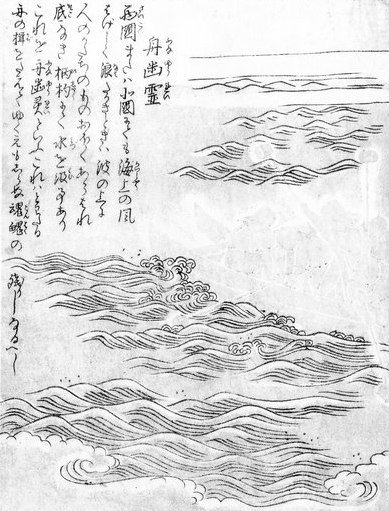 舟幽霊
西國または北國にても海上の風
はげしく浪たかきときハ波の上に
人のかたちのものおほくあらはれ
底なき柄杓にて水を汲事あり
これを舟幽霊といふこれハとわたる
舟の楫をたえてゆくえもしらぬ魂魄の
残りしなるべし